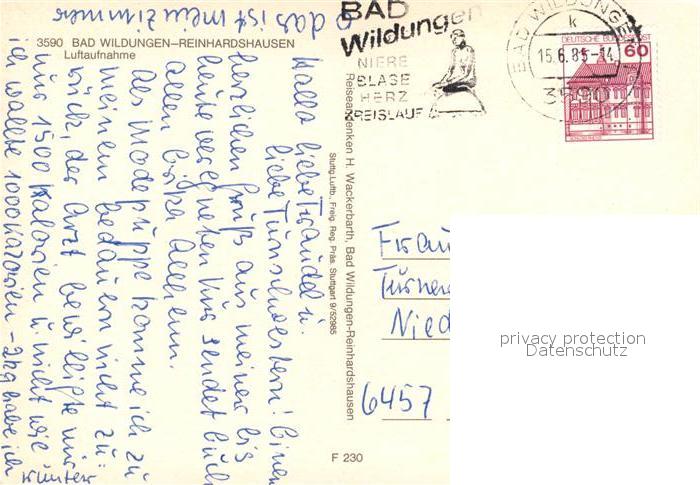 O das ist mein Zimmer
3590 BAD WILDUNGEN–REINHARDSHAUSEN
Luftaufnahme
BAD
Wildungen
NIERE
BLASE
HERZ
KREISLAUF
BAD WILDUNGEN
k
15.6.85-14
3590
DEUTSCHE BUNDESPOST
60
Hallo liebe Traudel u.
liebe Turnschwestern! Einen
herzlichen Gruß aus meiner bis
heute verregneten Kur sendet Euch
allen
Als Modepuppe komme ich zu
meinem bedauern nicht zu-
rück, der Arzt bewilligte mir
nur 1500 Kalorien u. nicht wie
ich wollte 1000 Kalorien - 2kg habe ich
runter
Reiseandenken H. Wackerbarth, Bad Wildungen-Reinhardshausen
Stuttg. Luftb., Freig. Reg. Präs. Stuttgart 9/52985
Frau
Turner
Nied
6457
F 230
privacy protection
Datenschutz